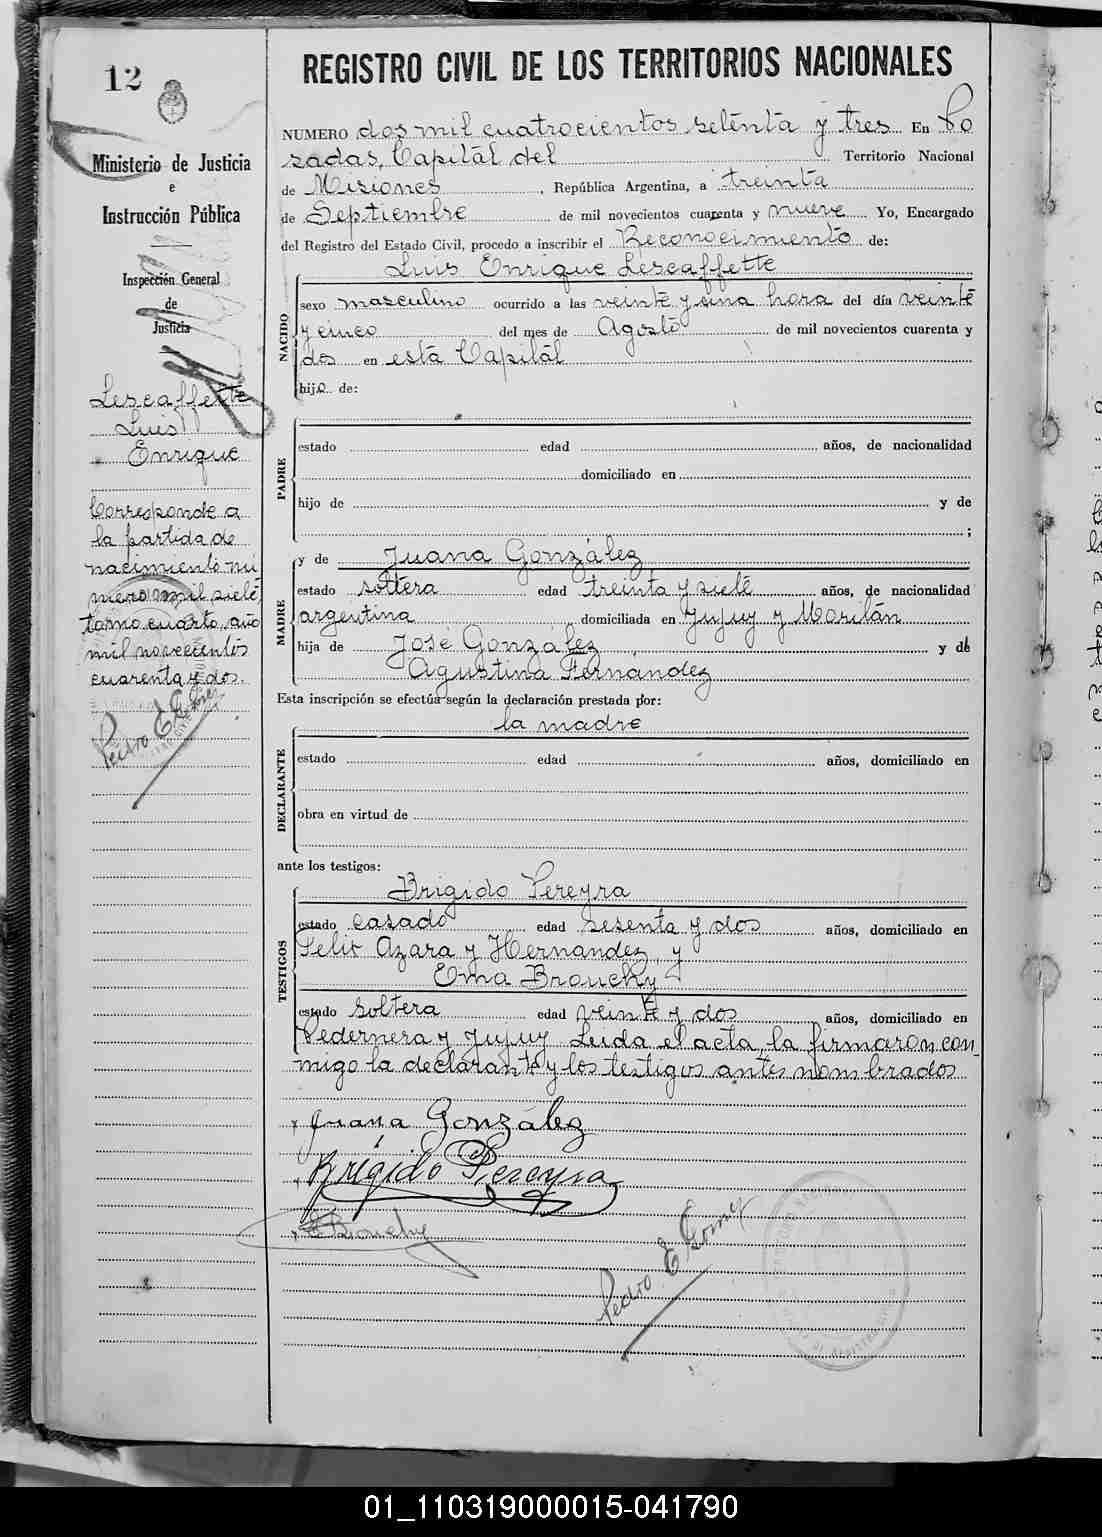 12
Ministerio de Justicia
e
Instrucción Pública
Inspección General
de
Justicia
Lescaffette
Luis
Enrique
Corresponde a
la partida de
nacimiento nú
mero mil siete,
tomo cuarto, año
mil novecientos
cuarenta y dos.
Pedro E Gomez
REGISTRO CIVIL DE LOS TERRITORIOS NACIONALES
NUMERO dos mil cuatrocientos setenta y tres En Po
sadas, Capital del Territorio Nacional
de Misiones, República Argentina, a treinta
de Septiembre de mil novecientos cuarenta y nueve Yo, Encargado
del Registro del Estado Civil, procedo a inscribir el Reconocimiento de:
Luis Enrique Lescaffette
NACIDO
sexo masculino ocurrido a las veinte y una hora del día veinte
y cinco del mes de Agosto de mil novecientos cuarenta y
dos en esta Capital
hijo de:
PADRE
estado edad años, de nacionalidad
domiciliado en
hijo de y de
;
y de Juana González
MADRE
estado soltera edad treinta y siete años, de nacionalidad
argentina domiciliada en Jujuy y Morilán
hija de José González y de
Agustina Fernández
Esta inscripción se efectúa según la declaración prestada por:
la madre
DECLARANTE
estado edad años, domiciliado en
obra en virtud de
ante los testigos:
Brigido Pereyra
TESTIGOS
estado casado edad sesenta y dos años, domiciliado en
Felix Azara y Hernandez, y
Ema Brouchy
estado soltera edad veinte y dos años, domiciliado en
Pedernera y Jujuy Leida el acta, la firmaron con
migo la declarante y los testigos antes nombrados
Juana González
Brígido Pereyra
E Brouchy
Pedro E Gomez
01_110319000015-041790